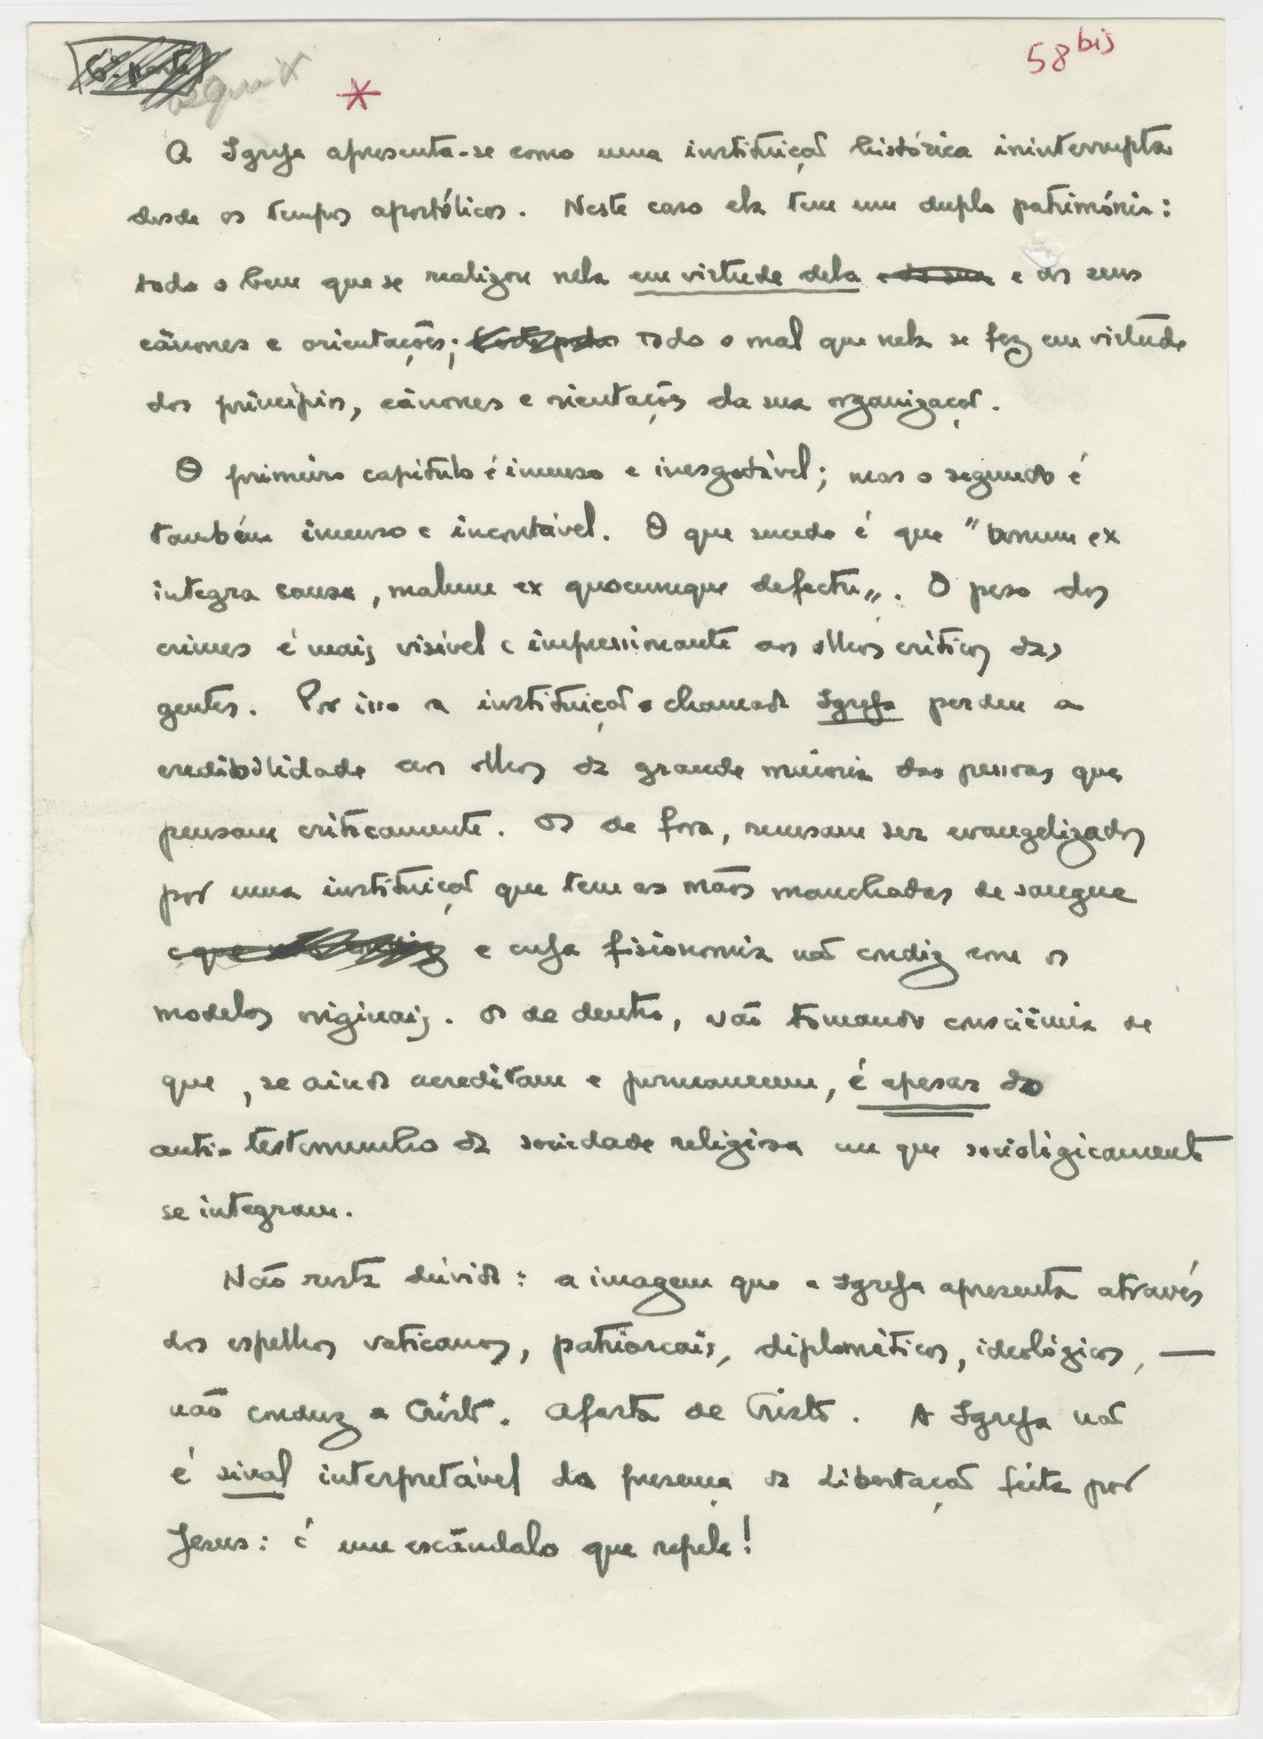 58 bis
*
A Igreja apresenta-se como uma instituição histórica ininterrupta
desde os tempos apostólicos. Neste caso ela tem um duplo património:
todo o bem que se realizou nela em virtude dela e dos seus
cânones e orientações; todo o mal que nela se fez em virtude
dos princípios, cânones e orientações da sua organização.
O primeiro capítulo é imenso e inesgotável; mas o segundo é
também imenso e incontável. O que sucede é que "bonum ex
integra causa, malum ex quocumque defectu". O peso dos
crimes é mais visível e impressionante aos olhos críticos das
gentes. Por isso a instituição chamada Igreja perdeu a
credibilidade aos olhos da grande maioria das pessoas que
pensam criticamente. Os de fora, recusam ser evangelizados
por uma instituição que tem as mãos manchadas de sangue
e cuja fisionomia não condiz com os
modelos originais. Os de dentro, vão tomando consciência de
que, se ainda acreditam e permanecem, é apesar do
anti-testemunho da sociedade religiosa em que sociològicamente
se integram.
Não resta dúvida: a imagem que a Igreja apresenta através
dos espelhos vaticanos, patriarcais, diplomáticos, ideológicos, —
não conduz a Cristo. Afasta de Cristo. A Igreja não
é sinal interpretável da presença da Libertação feita por
Jesus: é um escândalo que repele!